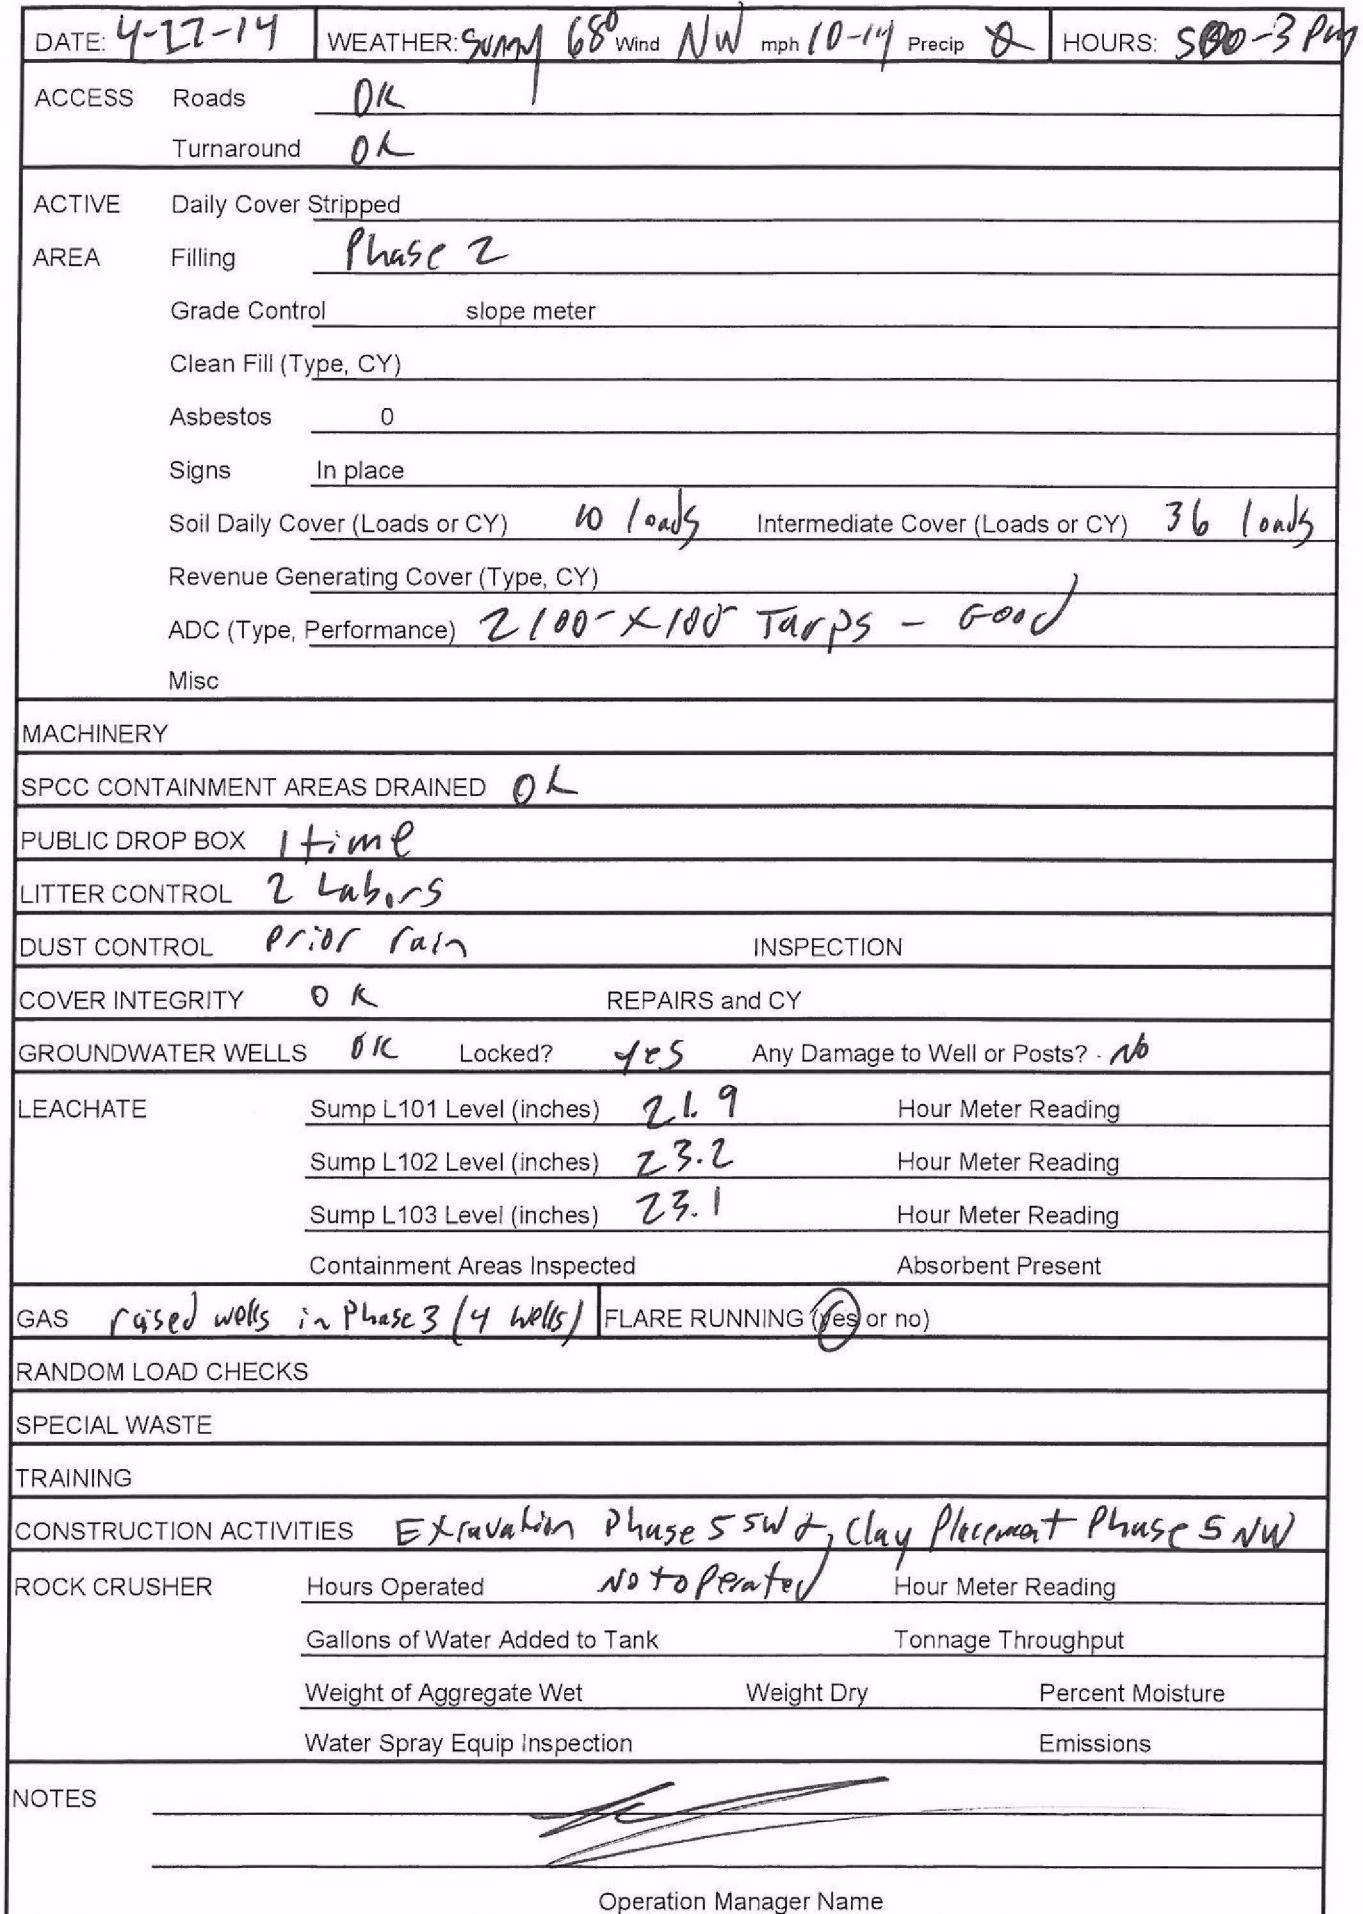 DATE: 4-22-14 WEATHER: Sunny 68° Wind NW mph 10-14 Precip 0 HOURS: 500-3 PM
ACCESS Roads OK
Turnaround OK
ACTIVE Daily Cover Stripped
AREA Filling Phase 2
Grade Control slope meter
Clean Fill (Type, CY)
Asbestos 0
Signs In place
Soil Daily Cover (Loads or CY) 10 loads Intermediate Cover (Loads or CY) 36 loads
Revenue Generating Cover (Type, CY)
ADC (Type, Performance) 2 100' X 100' Tarps - Good
Misc
MACHINERY
SPCC CONTAINMENT AREAS DRAINED OK
PUBLIC DROP BOX 1 time
LITTER CONTROL 2 Labors
DUST CONTROL prior rain INSPECTION
COVER INTEGRITY OK REPAIRS and CY
GROUNDWATER WELLS OK Locked? yes Any Damage to Well or Posts? No
LEACHATE Sump L101 Level (inches) 21.9 Hour Meter Reading
Sump L102 Level (inches) 23.2 Hour Meter Reading
Sump L103 Level (inches) 23.1 Hour Meter Reading
Containment Areas Inspected Absorbent Present
GAS raised wells in Phase 3 (4 wells) FLARE RUNNING (yes or no)
RANDOM LOAD CHECKS
SPECIAL WASTE
TRAINING
CONSTRUCTION ACTIVITIES Exravation Phase 5 SW &, Clay Placement Phase 5 NW
ROCK CRUSHER Hours Operated Not operated Hour Meter Reading
Gallons of Water Added to Tank Tonnage Throughput
Weight of Aggregate Wet Weight Dry Percent Moisture
Water Spray Equip Inspection Emissions
NOTES
Operation Manager Name